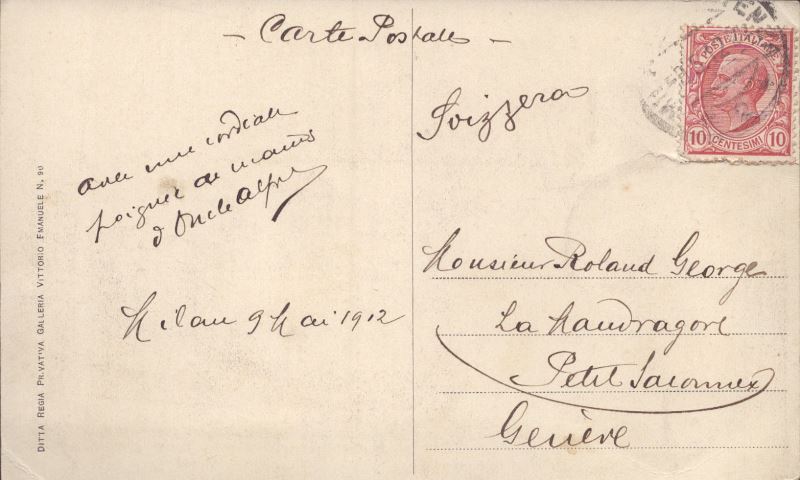 - Carte Postale -
Svizzera
POSTE ITALIANE
10 CENTESIMI 10
avec une cordiale
poignée de mains
d'Oncle Alfred
Milan 9 Mai 1912
Monsieur Roland George
La Mandragore
Petit Saconnex
Genève
DITTA REGIA PRIVATIVA GALLERIA VITTORIO EMANUELE N. 90